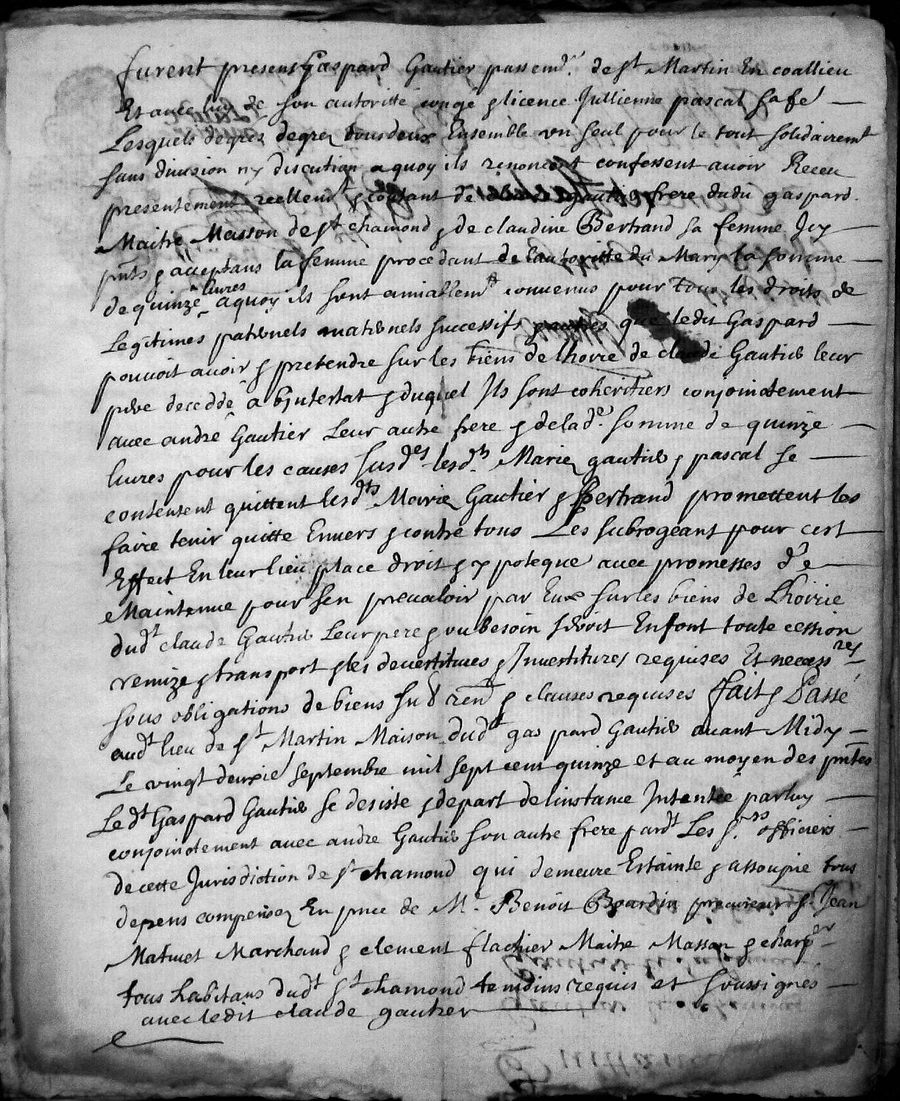 furent presens Gaspard Gautier passemr. de st Martin En coallieu
Et avec luy de son autoritté congé & licence Jullienne pascal sa fe
Lesquels degrez degrez tous deux Ensemble un seul pour le tout solidairemt
sans division ny discution a quoy ils renoncent confessent avoir Receu
presentement reellemt & contant de gautier frere dudit gaspard.
Maitre Masson de st chamond & de claudine Bertrand sa femme Icy
pnts & acceptans la femme procedant de lautoritté du Mary la somme
de quinze livres a quoy ils sont amiablemt convenus pour tous les droits de
Legitimes paternels maternels successifs & autres que ledit Gaspard
pouvoit avoir & pretendre sur les biens de lhoire de claude Gautier leur
pere decedde ab intestat & duquel Ils sont coheritiers conjointement
avec andre Gautier Leur autre frere & de lade. somme de quinze
livres pour les causes susdes lesds. Mariez gautier & pascal se
contentent quittent lesdts Mariez Gautier & Bertrand promettent les
faire tenir quitte Envers & contre tous Les subrogeant pour cest
Effect En leur lieu place droit & ypoteque avec promesses de
Maintenue pour sen prevaloir par Eux sur les biens de Lhoirie
dudt claude Gautier Leur pere & ou besoin seroit Enfont toute cession
remize & transport & les devertitues & Investitures requises Et necessres
sous obligations de biens & clauses requises fait & Passé
audt lieu de st Martin Maison dudt gaspard Gautier avant Midy
Le vingt deuxie septembre mil sept cent quinze et au moyen des pntes
Ledt Gaspard Gautier se desiste & depart de linstance Intentée par luy
conjointement avec andre Gautier son autre frere pardt Les srs officiers
de cette Jurisdiction de st chamond qui demeure Estainte & assoupie tous
depens compensez En pnce de Mr. Benoit procureur sr. Jean
Marchand & clement flachier Maitre Masson & charper
tous habitans dudt st chamond temoins requis et soussignes
avec ledit claude gautier